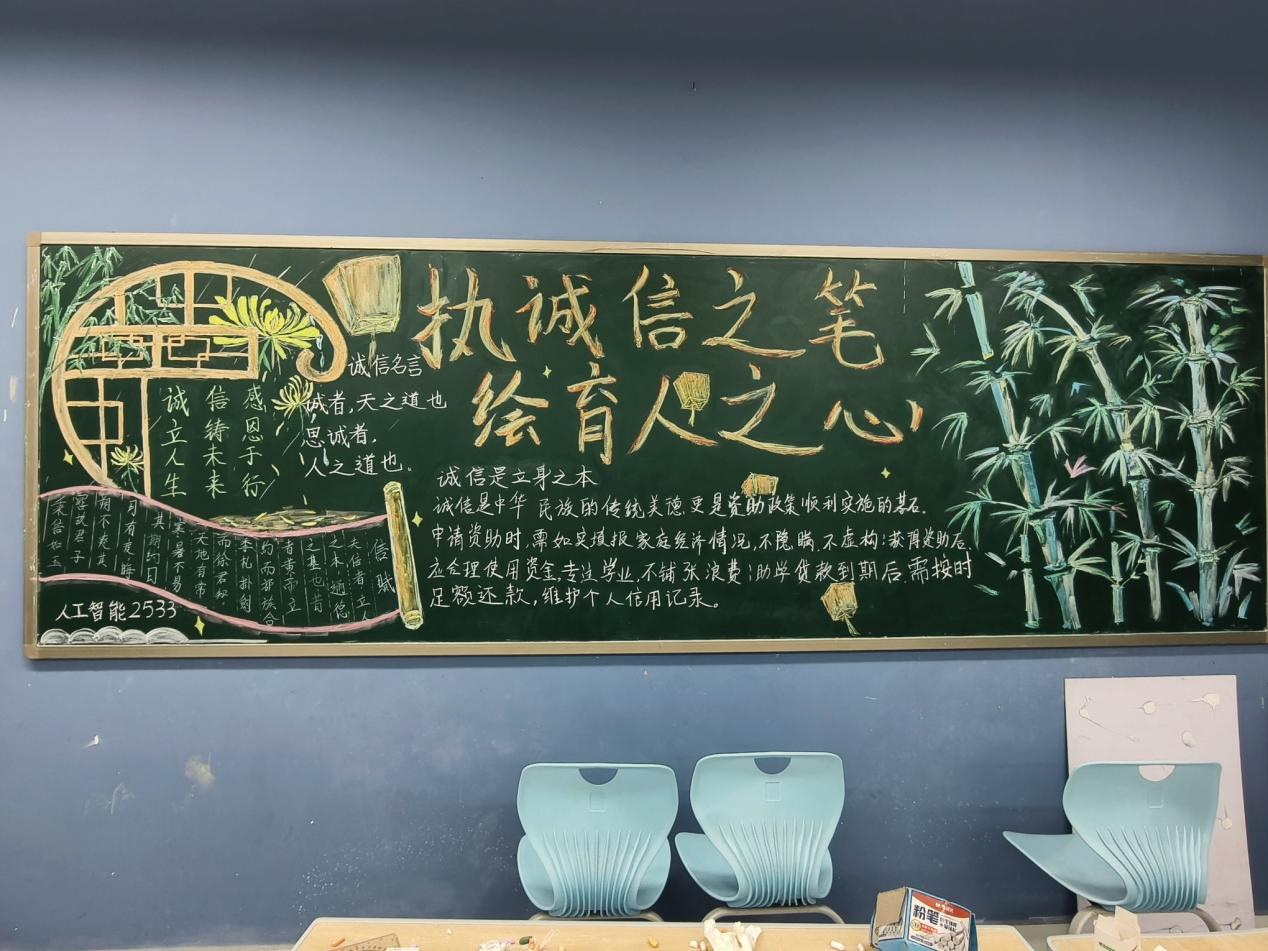 执诚信之笔
绘育人之心
诚信名言
诚者,天之道也
思诚者,
人之道也。
感恩于行
信铸未来
诚立人生
诚信是立身之本
诚信是中华民族的传统美德更是资助政策顺利实施的基石。
申请资助时,需如实填报家庭经济情况,不隐瞒、不虚构;获得资助后
应合理使用资金,专注学业,不铺张浪费;助学贷款到期后,需按时
足额还款,维护个人信用记录。
信赋
夫信者,立
之本,德
之基也。昔
者黄帝立
约而部族合
季札挂剑
而徐君知
天地有常
寒暑不易
其期约日
月有度晦
朔不爽其
君子
信如玉
人工智能2533
粉笔